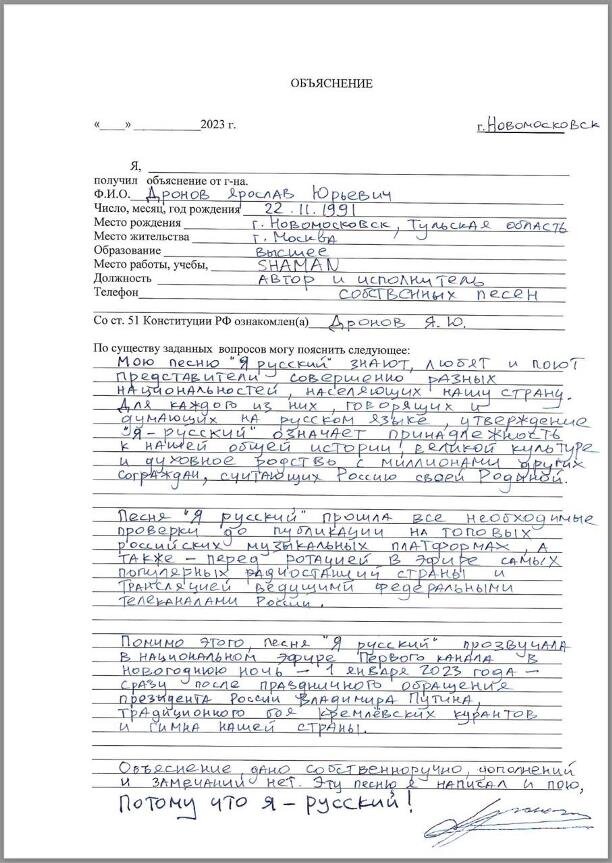 ОБЪЯСНЕНИЕ
«____» ___________2023 г. г.Новомосковск
Я,
получил объяснение от г-на.
Ф.И.О. Дронов Ярослав Юрьевич
Число, месяц, год рождения 22.11.1991
Место рождения г. Новомосковск, Тульская область
Место жительства г. Москва
Образование высшее
Место работы, учебы, SHAMAN
Должность автор и исполнитель
Телефон собственных песен
Со ст. 51 Конституции РФ ознакомлен(а) Дронов Я.Ю.
По существу заданных вопросов могу пояснить следующее:
Мою песню "Я русский" знают, любят и поют
представители совершенно разных
национальностей, населяющих нашу страну.
Для каждого из них, говорящих и
думающих на русском языке, утверждение
"Я - русский" означает принадлежность
к нашей общей истории, великой культуре
и духовное родство с миллионами других
сограждан, считающих Россию своей Родиной.
Песня "Я русский" прошла все необходимые
проверки до публикации на топовых
российских музыкальных платформах, а
также – перед ротацией в эфире самых
популярных радиостанций страны и
трансляцией ведущими федеральными
телеканалами России.
Помимо этого, песня "Я русский" прозвучала
в национальном эфире Первого канала в
новогоднюю ночь – 1 января 2023 года –
сразу после праздничного обращения
президента России Владимира Путина,
традиционного боя кремлёвских курантов
и гимна нашей страны.
Объяснение дано собственноручно, дополнений
и замечаний нет. Эту песню я написал и пою,
Потому что я – русский!